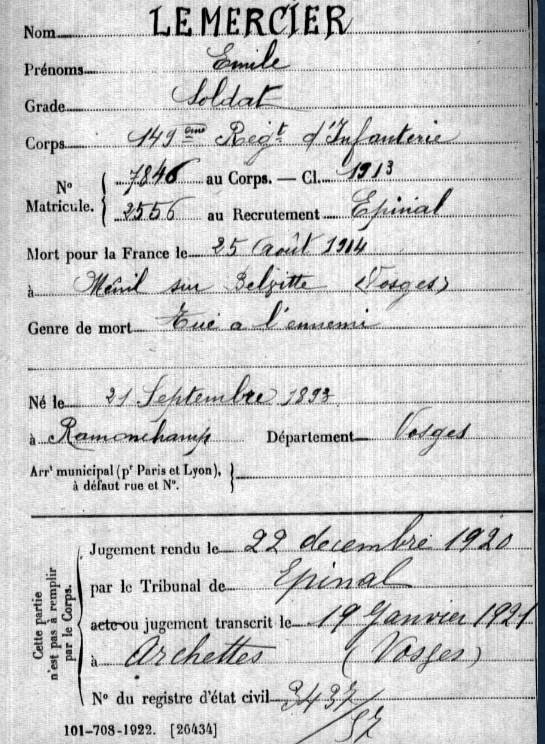 Nom LEMERCIER
Prénoms Emile
Grade Soldat
Corps 149ème Régt d'Infanterie
N° Matricule. { 7846 au Corps. — Cl. 1913
2556 au Recrutement Epinal
Mort pour la France le 25 Août 1914
à Ménil sur Belvitte (Vosges)
Genre de mort Tué a l'ennemi
Né le 21 Septembre 1893
à Ramonchamp Département Vosges
Arrt municipal (pr Paris et Lyon),
à défaut rue et N°. }
Cette partie n'est pas à remplir par le Corps.
Jugement rendu le 22 decembre 1920
par le Tribunal de Epinal
acte ou jugement transcrit le 19 Janvier 1921
à Archettes (Vosges)
N° du registre d'état civil 3437/57
101-708-1922. [26434]